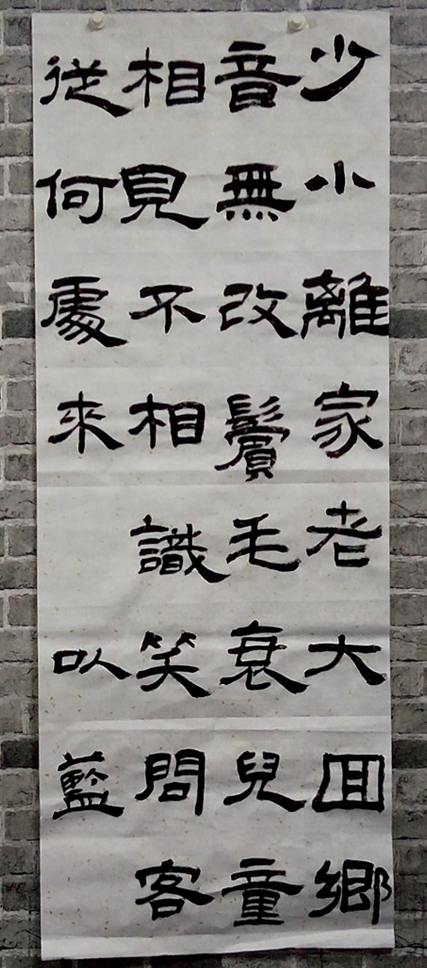 少小離家老大囬鄉
音無改鬢毛衰兒童
相見不相識笑問客
從何處來 以藍